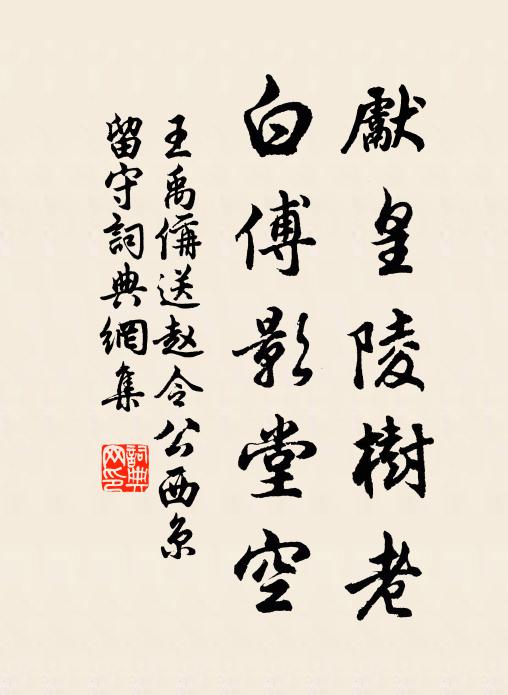 獻皇陵樹老
白傅影堂空
王禹偁送赵令公西京
留守詞典網集
詞典
网印